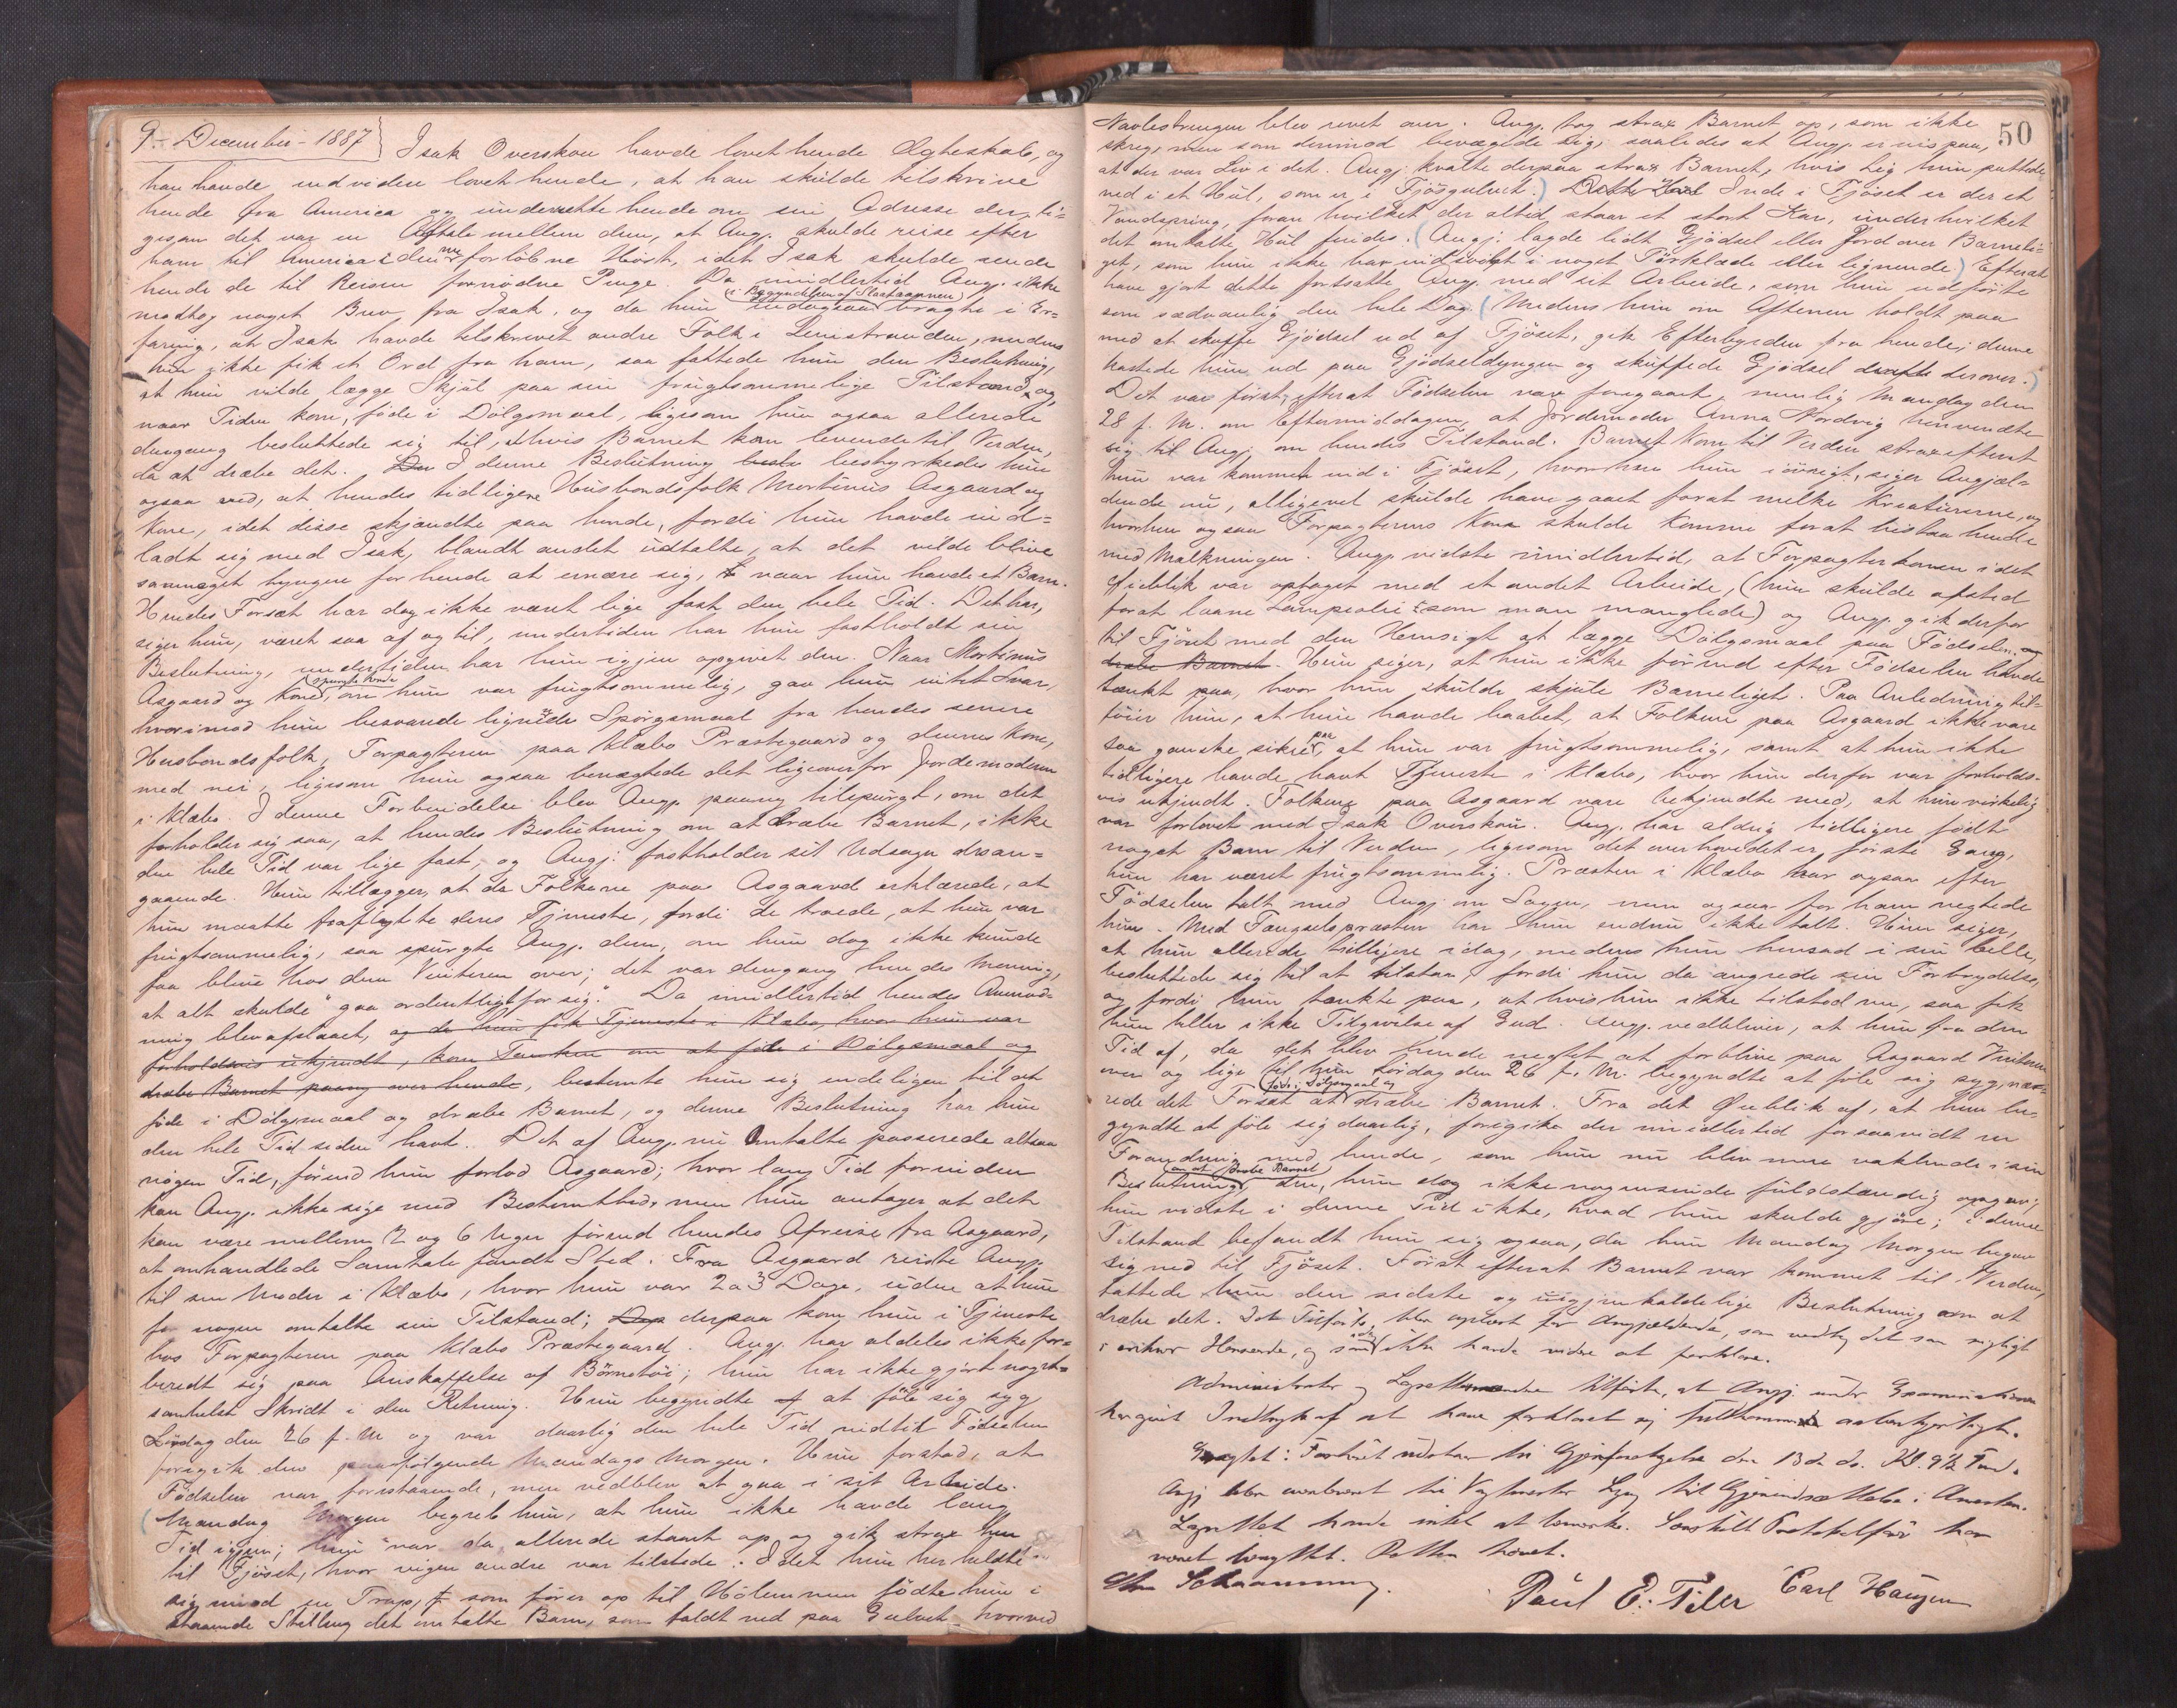 9 - December - 1887 Isak Overskou havde lovet hende Ægteskab, og
han havde endvidere lovet hende, at han skulde tilskrive
hende fra America og underrette hende om sin Adresse der, li=
gesom det var en Aftale mellem dem, at Ang. skulde reise efter
ham til America i den nu forløbne Høst, idet Isak skulde sende
hende de til Reisen fornødne Penge. Da imidlertid Ang. ikke
modtog noget Brev fra Isak, og da hun (i Begyndelsen af Slaataannen) bragte i Er=
faring, at Isak havde tilskrevet andre Folk i Leinstranden, medens
hun ikke fik et Ord fra ham, saa fattede hun den Beslutning,
at hun vilde lægge Skjul paa sin frugtsommelige Tilstand og,
naar Tiden kom, føde i Dølgsmaal, ligesom hun ogsaa allerede
dengang besluttede sig til, hvis Barnet kom levende til Verden,
da at dræbe det. I denne Beslutning bestyrkedes hun
ogsaa ved, at hendes tidligere Husbondsfolk Mortinus Asgaard og
Kone, idet disse skjændte paa hende, fordi hun havde ind=
ladt sig med Isak, blandt andet udtalte, at det vilde blive
saameget tyngre for hende at ernære sig, naar hun havde et Barn.
Hendes Forsæt har dog ikke været lige fast den hele Tid. Det har,
siger hun, været saa af og til, undertiden har hun fastholdt sin
Beslutning, undertiden har hun igjen opgivet den. Naar Mortinus
Asgaard og Kone spurgte hende, om hun var frugtsommelig, gav hun intet Svar,
hvorimod hun besvarede lignende Spørgsmaal fra hendes senere
Husbondsfolk, Forpagteren paa Klæbo Præstegaard og dennes Kone,
med nei, ligesom hun ogsaa benægtede det ligeoverfor Jordemoderen
i Klæbo. I denne Forbindelse blev Ang. paany tilspurgt, om det
forholder sig saa, at hendes Beslutning om at dræbe Barnet, ikke
den hele Tid var lige fast, og Angj. fastholder sit Udsagn desan=
gaaende. Hun tillægger, at da Folkene paa Asgaard erklærede, at
hun maatte fraflytte deres Tjeneste, fordi de troede, at hun var
frugtsommelig, saa spurgte Ang. dem, om hun dog ikke kunde
faa blive hos dem Vinteren over; det var dengang hendes Mening,
at alt skulde "gaa ordentligt for sig." Da imidlertid hendes Anmod=
ning blev afslaaet, og da hun fik Tjeneste i Klæbo, hvor hun var
forholdsvis ukjendt, kom Tanken om at føde i Dølgsmaal og
dræbe Barnet paany over hende, bestemte hun sig endeligen til at
føde i Dølgsmaal og dræbe Barnet, og denne Beslutning har hun
den hele Tid siden havt. Det af Ang. nu omtalte passerede altsaa
nogen Tid, førend hun forlod Asgaard; hvor lang Tid forinden
kan Ang. ikke sige med Bestemthed, men hun antager at det
kan være mellem 2 og 6 Uger førend hendes Afreise fra Asgaard,
at omhandlede Samtale fandt Sted. Fra Asgaard reiste Ang.
til sin Moder i Klæbo, hvor hun var 2 a 3 Dage, uden at hun
for nogen omtalte sin Tilstand; derpaa kom hun i Tjeneste
hos Forpagteren paa Klæbo Præstegaard. Ang. har aldeles ikke for=
beredt sig paa Anskaffelse af Børnetøi; hun har ikke gjort noget=
somhelst Skridt i den Retning. Hun begyndte at føle sig syg
Lørdag den 26 f. M og var daarlig den hele Tid indtil Fødselen
foregik den paafølgende Mandags Morgen. Hun forstod, at
Fødselen var forestaaende, men vedblev at gaa i sit Arbeide.
(Mandag Morgen begreb hun, at hun ikke havde lang
Tid igjen; hun var da allerede staaet op og gik strax hen
til Fjøset, hvor ingen andre var tilstede. I det hun her heldte
sig mod en Trap, som fører op til Hølemmen fødte hun i
staaende Stilling det omtalte Barn, som faldt ned paa Gulvet hvorved
50
Navlestrengen blev revet over. Ang. tog strax Barnet op, som ikke
skreg, men som derimod bevægede sig, saaledes at Ang. er vis paa,
at der var Liv i det. Angj. kvalte derpaa strax Barnet, hvis Lig hun puttede
ned i et Hul, som er i Fjøsgulvet.) Dette Hul Inde i Fjøset er der et
Vandspring, foran hvilket der altid staar et stort Kar, under hvilket
det omtalte Hul findes. (Angj. lagde lidt Gjødsel eller Jord over Barneli=
get, som hun ikke har indsvøbt i noget Tørklæde eller lignende) Efterat
have gjort dette fortsatte Ang. med sit Arbeide, som hun udførte
som sædvanlig den hele Dag. (Medens hun om Aftenen holdt paa
med at skuffe Gjødsel ud af Fjøset, gik Efterbyrden fra hende; denne
kastede hun ud paa Gjødseldyngen og skuffede Gjødsel derover.)
Det var først, efterat Fødselen var foregaaet, nemlig Mandag den
28 f. M. om Eftermiddagen, at Jordemoder Anna Nordvig henvendte
sig til Angj. om hendes Tilstand. Barnet kom til Verden strax efterat
hun var kommet ind i Fjøset, hvorhen hun iøvrigt, siger Angjæl=
dende nu, alligevel skulde have gaaet forat melke Kreaturerne, og
hvorhen ogsaa Forpagterens Kone skulde komme forat bistaa hende
med Malkningen. Ang. vidste imidlertid, at Forpagterkonen i det
Øieblik var optaget med et andet Arbeide, (hun skulde afsted
forat laane Lampeolie som man manglede) og Ang. gik derfor
til Fjøset med den Hensigt at lægge Dølgsmaal paa Fødselen og
dræbe Barnet. Hun siger, at hun ikke førend efter Fødselen havde
tænkt paa, hvor hun skulde skjule Barneliget. Paa Anledning til=
føier hun, at hun havde haabet, at Folkene paa Asgaard ikke vare
saa ganske sikre paa, at hun var frugtsommelig, samt at hun ikke
tidligere havde havt Tjeneste i Klæbo, hvor hun derfor var forholds-
vis ukjendt. Folkene paa Asgaard vare bekjendte med, at hun virkelig
var forlovet med Isak Overskou. Ang. har aldrig tidligere født
noget Barn til Verden, ligesom det overhovedet er første Gang,
hun har været frugtsommelig. Præsten i Klæbo har ogsaa efter
Fødselen talt med Angj. om Sagen, men ogsaa for ham negtede
hun. Med Fængselspræsten har hun endnu ikke talt. Hun siger,
at hun allerede tidligere idag, medens hun hensad i sin Celle,
besluttede sig til at tilstaa, fordi hun da angrede sin Forbrydelse,
og fordi hun tænkte paa, at hvis hun ikke tilstod nu, saa fik
hun heller ikke Tilgivelse af Gud. Angj. vedbliver, at hun fra den
Tid af, da det blev hende negtet at forblive paa Asgaard Vinteren
over og lige til hun Lørdag den 26 f. M. begyndte at føle sig syg, næ=
rede det Forsæt at (føde i Dølgsmaal og) dræbe Barnet. Fra det Øieblik af, at hun be=
gyndte at føle sig daarlig, foregik der imidlertid forsaavidt en
Forandring med hende, som hun nu blev mere vaklende i sin
Beslutning (om at dræbe Barnet), den, hun dog ikke nogensinde fuldstændig opgav;
hun vidste i denne Tid ikke, hvad hun skulde gjøre; i denne
Tilstand befandt hun sig ogsaa, da hun Mandag Morgen begav
sig ned til Fjøset. Først efterat Barnet var kommet til Verden,
fattede hun den sidste og uigjenkaldelige Beslutning om at
dræbe det. Det Tilførte blev oplæst for Angjældende, som vedtog det som rigtigt
i enhver Henseende, og ikke havde videre at forklare.
Administrator og Lagrettemændene tilførte, at Angj. under Examinationen
har givet Indtryk af at have forklaret sig fuldkommen
Eragtet: Forhøret udstaar til Gjenforetagelse den 13de ds. Kl. 9½ Form.
Angj blev overleveret til Vagtmester til Gjenindsættelse i Arresten.
Lagrettet havde intet at bemærke. Særskilt Protokolfør har
været benyttet. Retten hævet.
Schaanning. Paul E. Tiller Carl Haugen